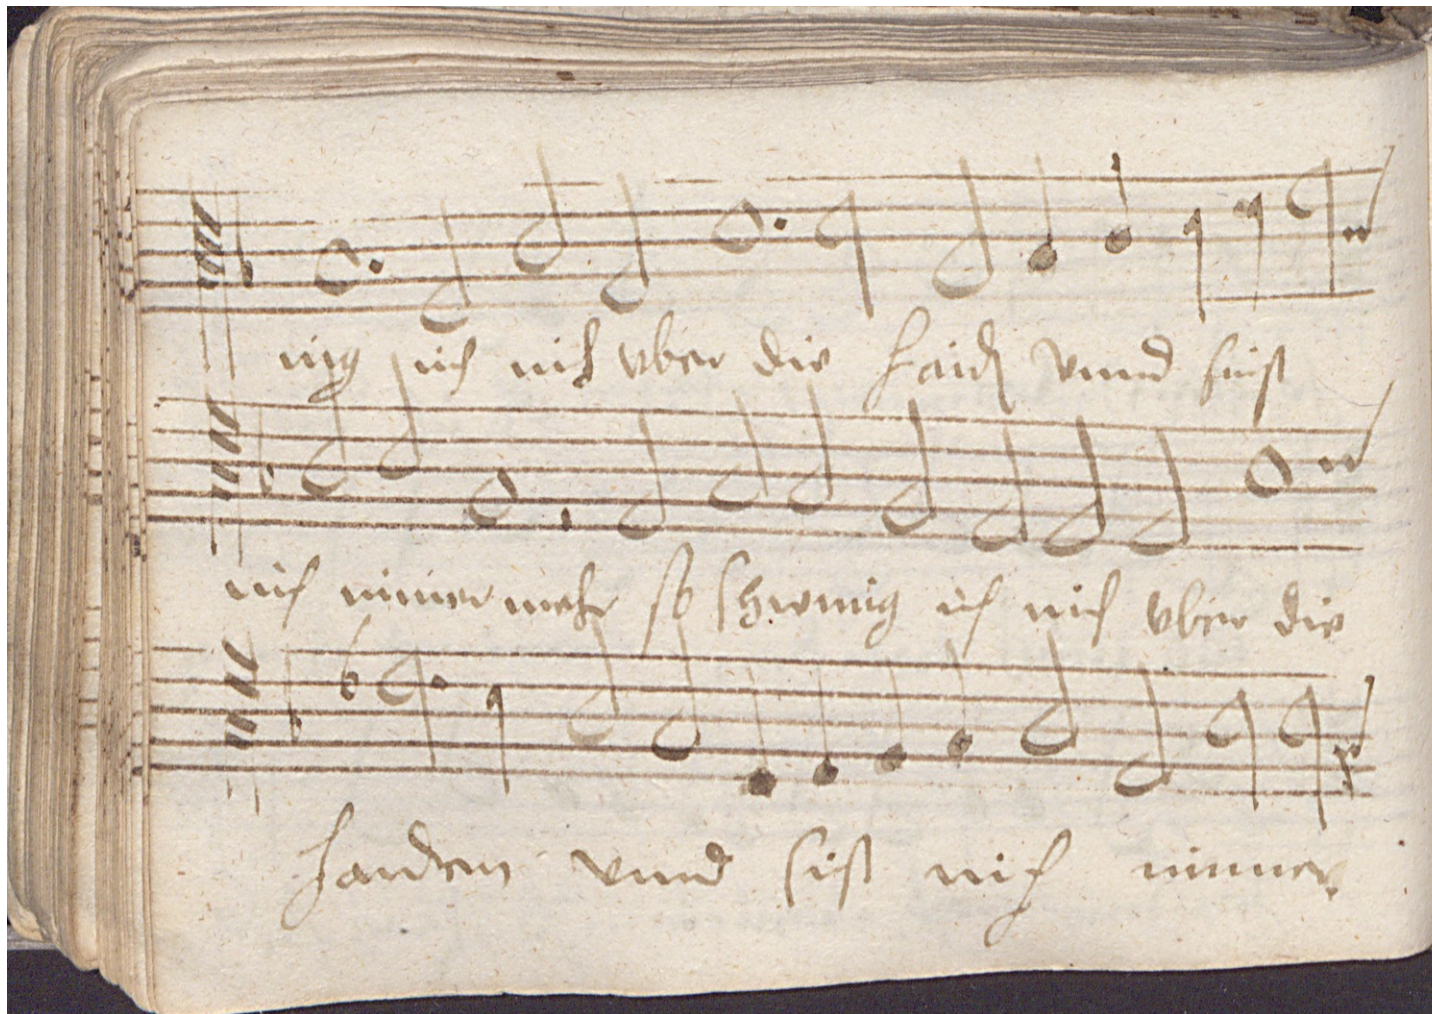 nig ich mich vber die haid vnnd siist
mich nimer mehr so schwing ich mich vber die
haiden vnnd sist mich nimmer